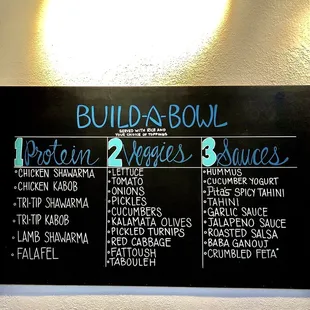 BUILD-A-BOWL
SERVED WITH RICE AND
YOUR CHOICE OF TOPPINGS
1 Protein
CHICKEN SHAWARMA
CHICKEN KABOB
TRI-TIP SHAWARMA
TRI-TIP KABOB
LAMB SHAWARMA
FALAFEL
2 Veggies
LETTUCE
TOMATO
ONIONS
PICKLES
CUCUMBERS
KALAMATA OLIVES
PICKLED TURNIPS
RED CABBAGE
FATTOUSH
TABOULEH
3 Sauces
HUMMUS
CUCUMBER YOGURT
Pita's SPICY TAHINI
TAHINI
GARLIC SAUCE
JALAPENO SAUCE
ROASTED SALSA
BABA GANOUJ
CRUMBLED FETA*